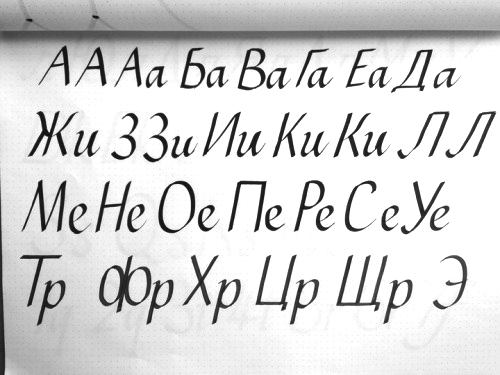 А А Аа Ба Ва Га Еа Да
Жи З Зи Ии Ки Ки Л Л
Ме Не Ое Пе Ре Се Уе
Тр Ф Фр Хр Цр Щр Э